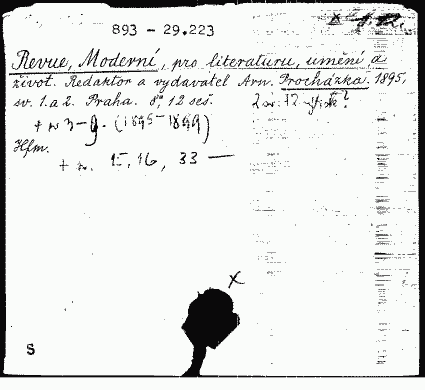 893 - 29.223
Revue, Moderní, pro literaturu, umění a
život. Redaktor a vydavatel Arn. Procházka. 1895.
sv. 1. a 2. Praha. 8°, 12 seš.
+ sv 3-9. (1895-1899)
Hfm.
+ sv. 15, 16, 33 —
x
S